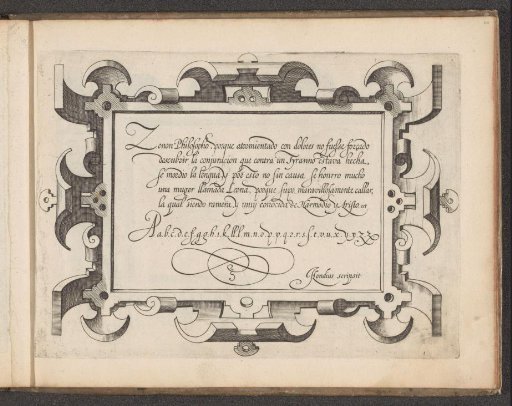 Zenon Philosopho, porque atormentado con dolores no fuesse forçado
descubrir la conjuracion que contra un Tyranno estava hecha,
se mordio la lengua, y por esto no sin causa. Se honrro mucho
una muger llamada Leona, porque supo maravillosamente callar,
la qual siendo ramera, y muy conocida de Harmodio y Aristo
A a b c d e f g g h i k l ll m n o p p q q r s s t v u x y z
Hondius scripsit